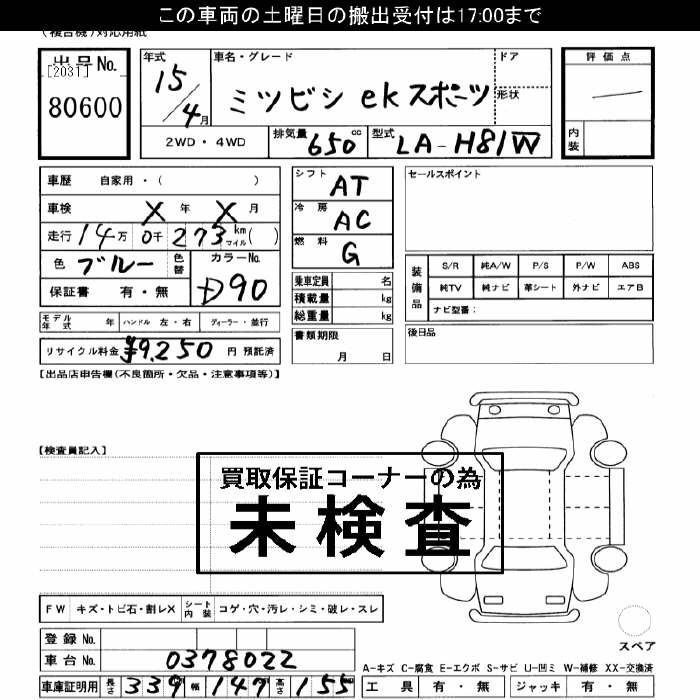 この車両の土曜日の搬出受付は17:00まで
(複合機)対応用紙
出品No.
[2031]
80600
年式
15/4月
車名・グレード
ミツビシ ekスポーツ
ドア
形状
2WD・4WD
排気量 650 cc
型式 LA-H81W
評価点
内装
車歴 自家用・( )
車検 X 年 X 月
走行 14万 0千 273 km マイル ( )
色 ブルー 色替
カラーNo.
D90
保証書 有・無
モデル年式 年 ハンドル 左・右 ディーラー・並行
リサイクル料金 ¥9,250 円 預託済
シフト AT
冷房 AC
燃料 G
乗車定員 名
積載量 kg
総重量 kg
書類期限
月 日
セールスポイント
装備品
S/R 純A/W P/S P/W ABS
純TV 純ナビ 革シート 外ナビ エアB
ナビ型番:
後日品
【出品店申告欄(不良箇所・欠品・注意事項等)】
【検査員記入】
買取保証コーナーの為
未検査
FW キズ・トビ石・割レX シート内装 コゲ・穴・汚レ・シミ・破レ・スレ
登録No.
車台No. 0378022
車庫証明用 長さ 339 幅 147 高さ 155
スペア
A-キズ C-腐食 E-エクボ S-サビ U-凹ミ W-補修 XX-交換済
工具 有・無 ジャッキ 有・無